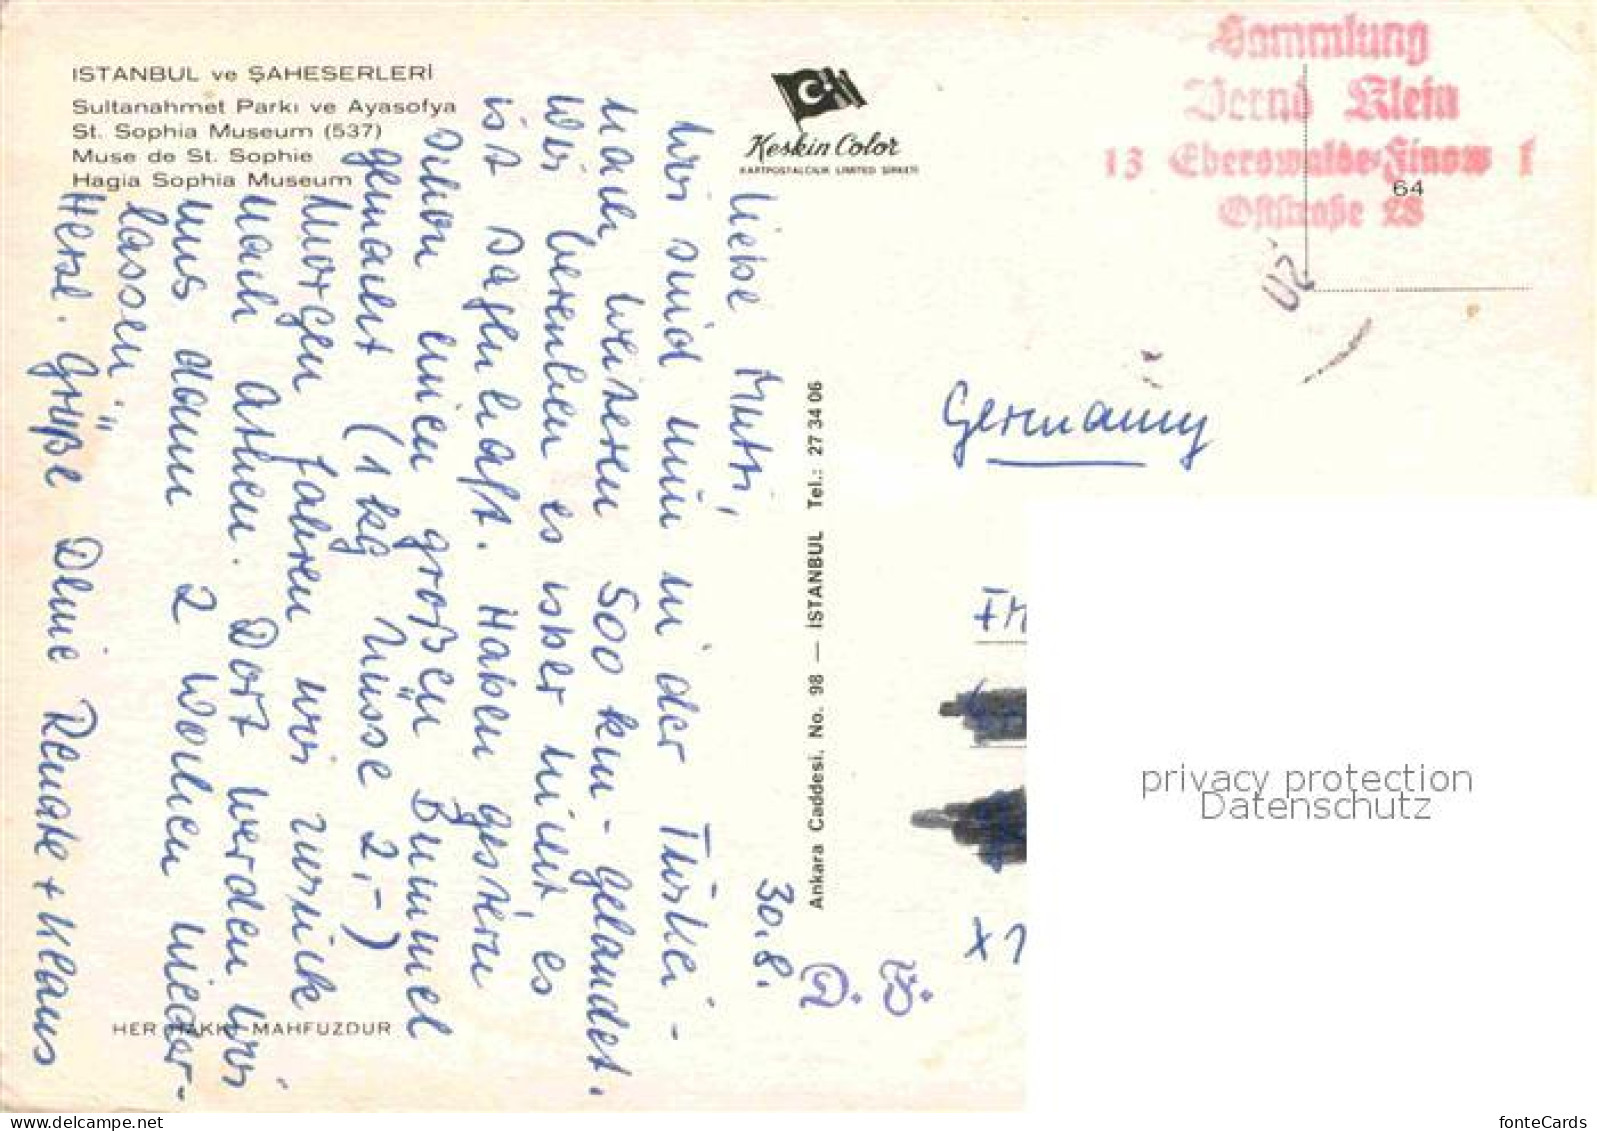 ISTANBUL ve ŞAHESERLERİ
Sultanahmet Parkı ve Ayasofya
St. Sophia Museum (537)
Muse de St. Sophie
Hagia Sophia Museum
Keskin Color
KARTPOSTALCILIK LIMITED ŞIRKETI
Sammlung
Bernd Klein
13 Eberswalde-Finow 1
Oststraße 28
64
UZ
Germany
30.8.
Liebe Mutti,
wir sind nun in der Türkei -
nach weiteren 500 km - gelandet.
Wir bereuhen es aber nicht, es
ist sagenhaft. Haben gestern
schon einen großen Bummel
gemacht (1 kg Nüsse 2,-)
Morgen fahren wir zurück
nach Athen. Dort werden wir
uns dann 2 Wochen nieder-
lassen"
Herzl. Grüße Deine Renate + Klaus
Ankara Caddesi. No. 98 — İSTANBUL Tel.: 27 34 06
HER HAKKI MAHFUZDUR
X1
privacy protection
Datenschutz
www.delcampe.net
fonteCards